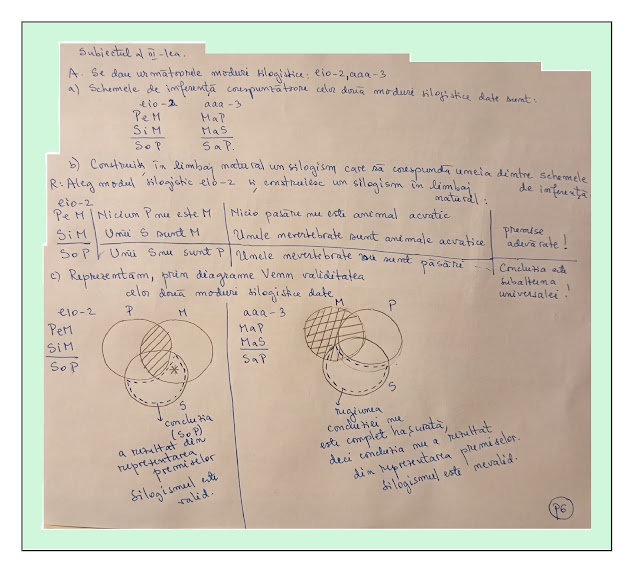 Subiectul al III-lea.
A. Se dau următoarele moduri silogistice: eio-2, aaa-3
a) Schemele de inferență corespunzătoare celor două moduri silogistice date sunt:
eio-2 aaa-3
PeM MaP
SiM MaS
SoP SaP.
b) Construiți în limbaj natural un silogism care să corespundă uneia dintre schemele
de inferență.
R: Aleg modul silogistic eio-2 și construiesc un silogism în limbaj
natural:
eio-2
PeM Niciun P nu este M Nicio pasăre nu este animal acvatic
SiM Unii S sunt M Unele nevertebrate sunt animale acvatice
premise
adevărate!
SoP Unii S nu sunt P Unele nevertebrate nu sunt păsări
Concluzia este
subalterna
universalei!
c) Reprezentăm, prin diagrame Venn validitatea
celor două moduri silogistice date
eio-2 P M
PeM
SiM
SoP
S
concluzia
(SoP)
a rezultat din
reprezentarea
premiselor
Silogismul este
valid.
aaa-3 M P
MaP
MaS
SaP
S
regiunea
concluziei nu
este complet hașurată,
deci concluzia nu a rezultat
din reprezentarea premiselor.
Silogismul este nevalid.
P6